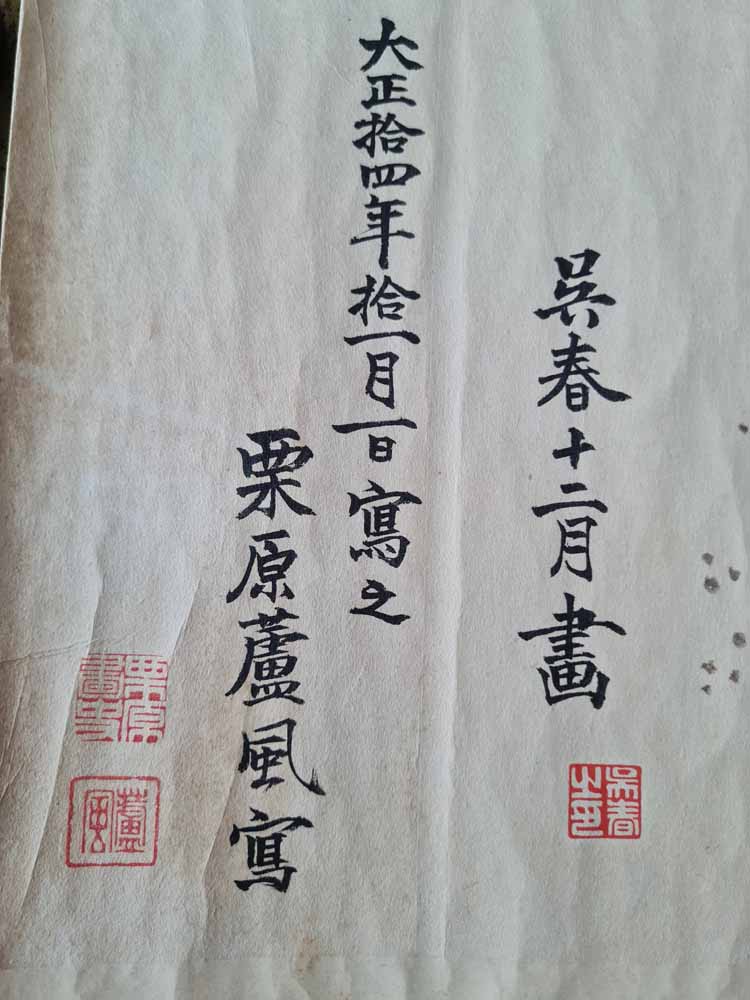 呉春十二月畫
呉春之印
大正拾四年拾一月一日寫之
栗原蘆風寫
栗原畫印
蘆風